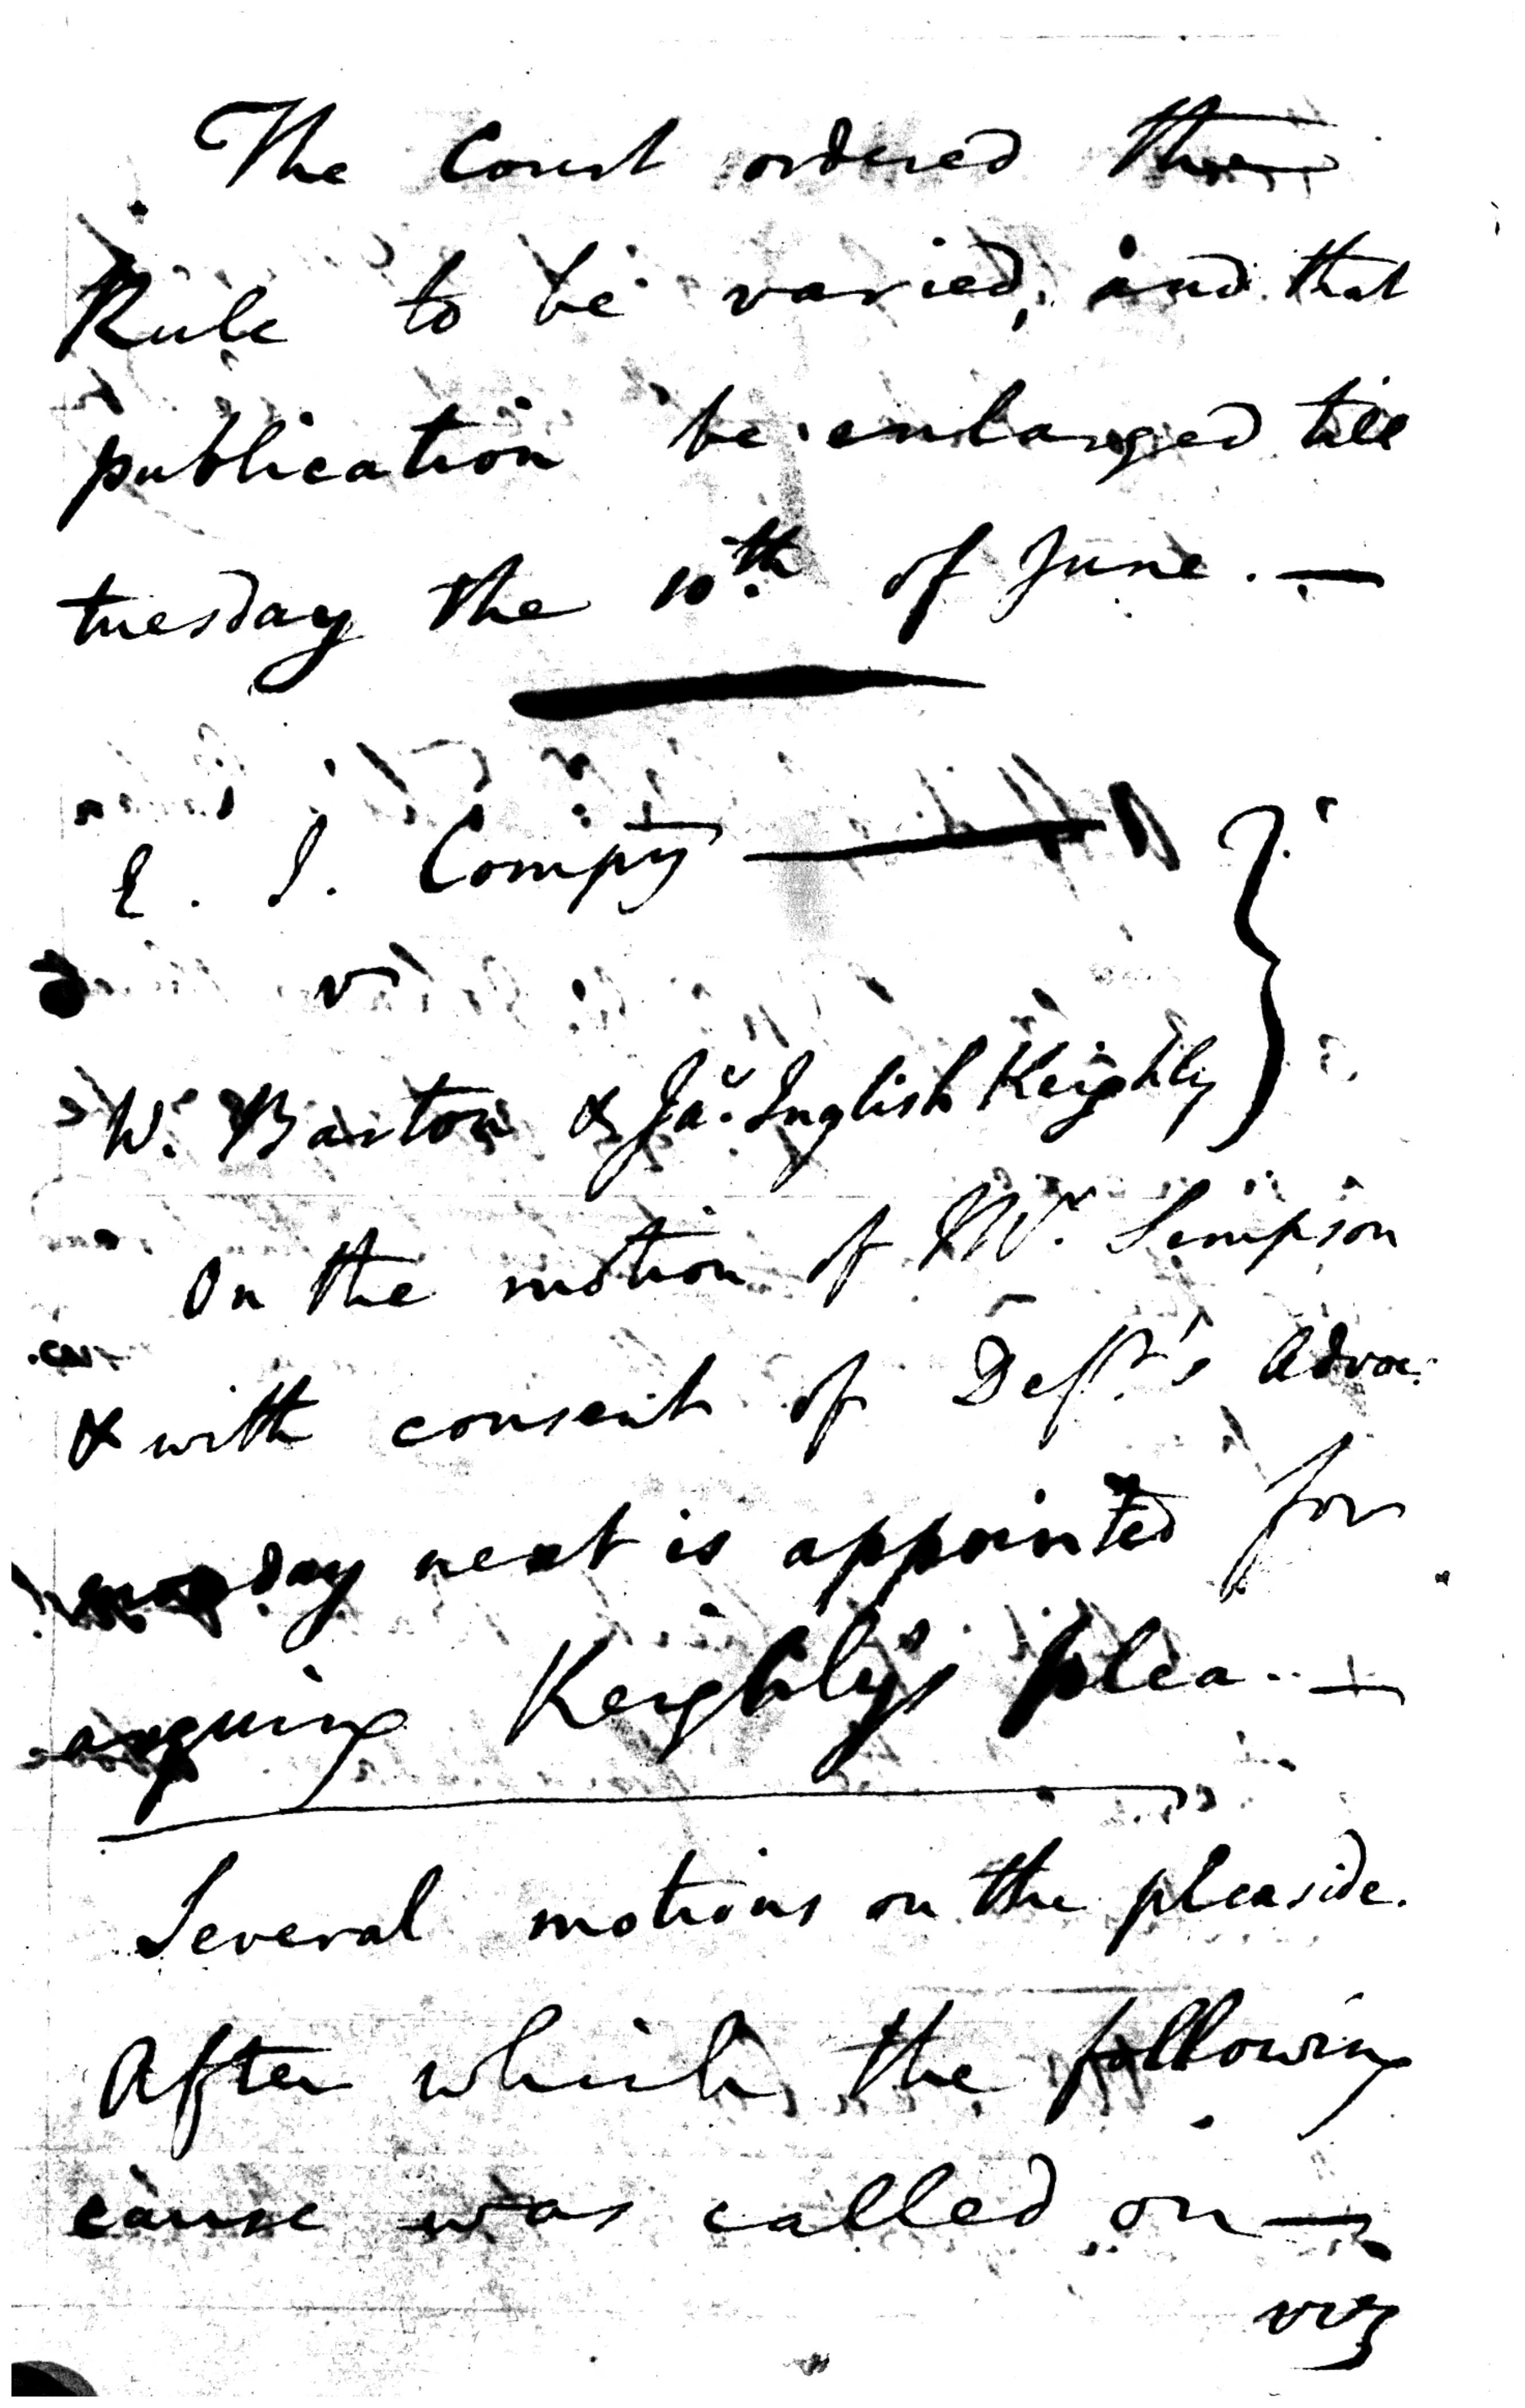 The Court ordered the
Rule to be varied, and that
publication be enlarged till
tuesday the 10th. of June. —
E. I. Compy —
v
W. Barton & Jas. Inglish Keighly
On the motion of Mr. Simpson
& with consent of Deft.'s Advoc:
monday next is appointed for
arguing Keighly's plea. —
Several motions on the pleaside.
After which the following
cause was called on —
viz